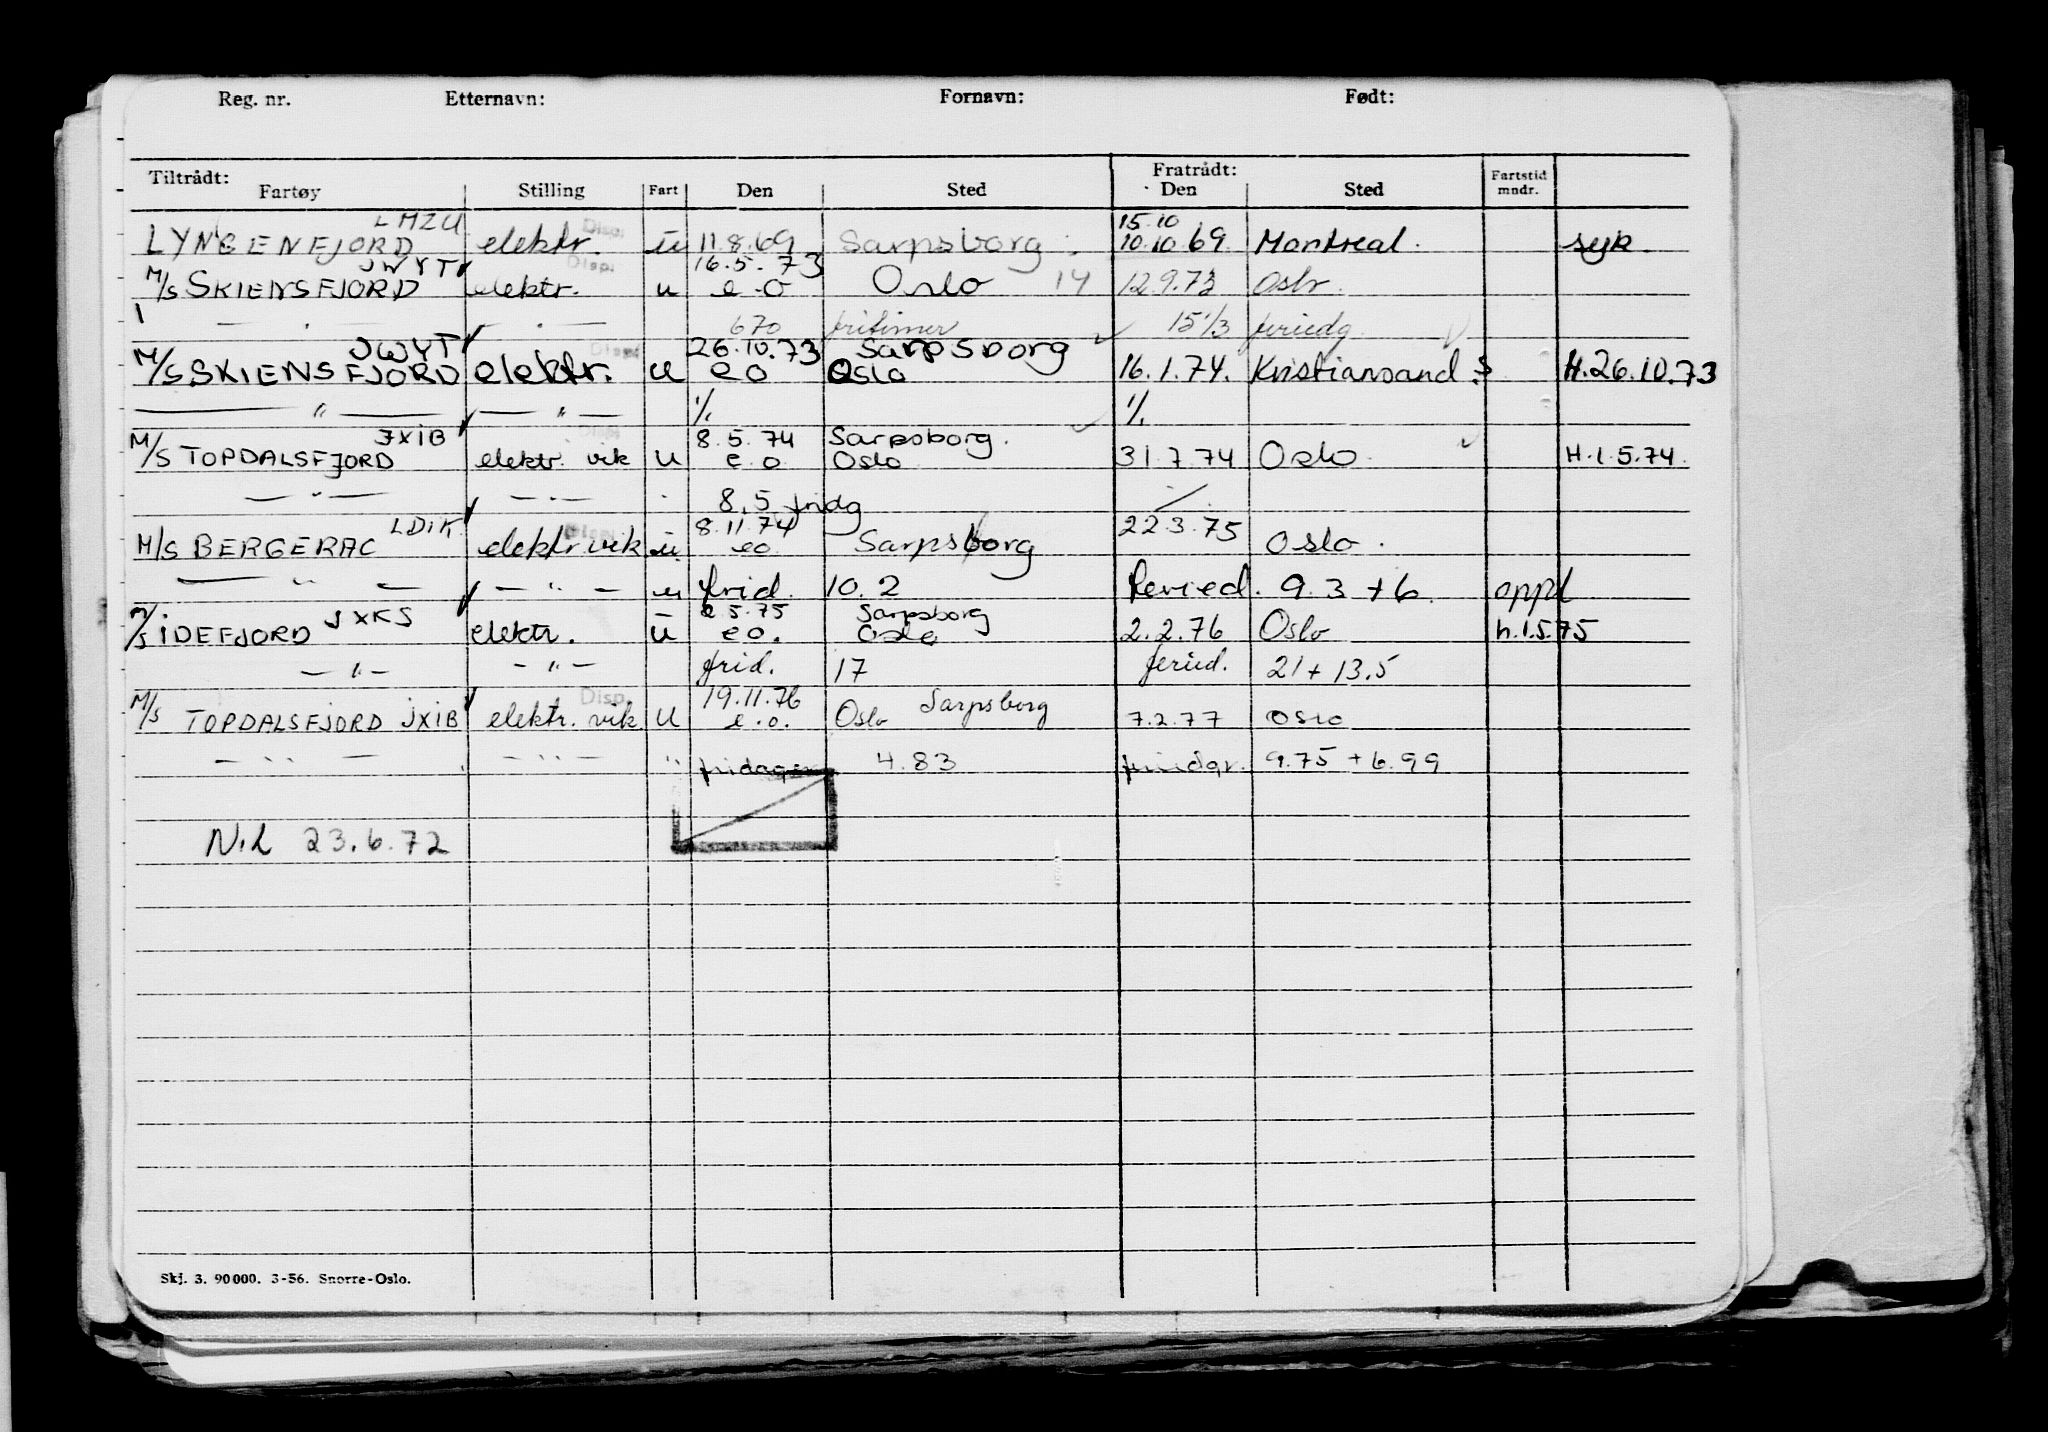 Reg. nr. Etternavn: Fornavn: Født:
Tiltrådt: Fratrådt:
Fartøy Stilling Fart Den Sted Den Sted Fartstid mndr.
LMZU Disp. 15.10
LYNGENFJORD elektr. u 11.8.69 Sarpsborg 10.10.69 Montreal. syk.
JWYT Disp. 16.5.73
M/S SKIENSFJORD elektr. u e.o Oslo 14 12.9.73 Oslo
— " — — " — 670 fritimer 15 1/3 feriedg
JWYT Disp. 26.10.73 Sarpsborg
M/S SKIENSFJORD elektr. u e o Oslo 16.1.74. Kristiansand S H.26.10.73
— " — — " — 1/. 1/.
JXIB Disp. 8.5.74 Sarpsborg.
M/S TOPDALSFJORD elektr. vik u e.o. Oslo 31.7.74 Oslo. H.1.5.74.
— " — — " — 8,5 fridg
LDIK Disp. 8.11.74 22.3.75
M/S BERGERAC elektr vik. u eo Sarpsborg Oslo.
— " — — " — u frid. 10.2 feried. 9.3 + 6. oppl
JXKS 2.5.75 Sarpsborg
M/S IDEFJORD elektr. u e o. Oslo 2.2.76 Oslo h.1.5.75
— " — — " — frid. 17 feried. 21 + 13.5
Disp. 19.11.76
M/S TOPDALSFJORD JXIB elektr. vik. u e.o. Oslo Sarpsborg 7.2.77 OSLO
— " — — " — " fridager 4.83 feriedgr. 9.75 + 6.99
N.L 23.6.72
Skj. 3. 90 000. 3-56. Snorre-Oslo.